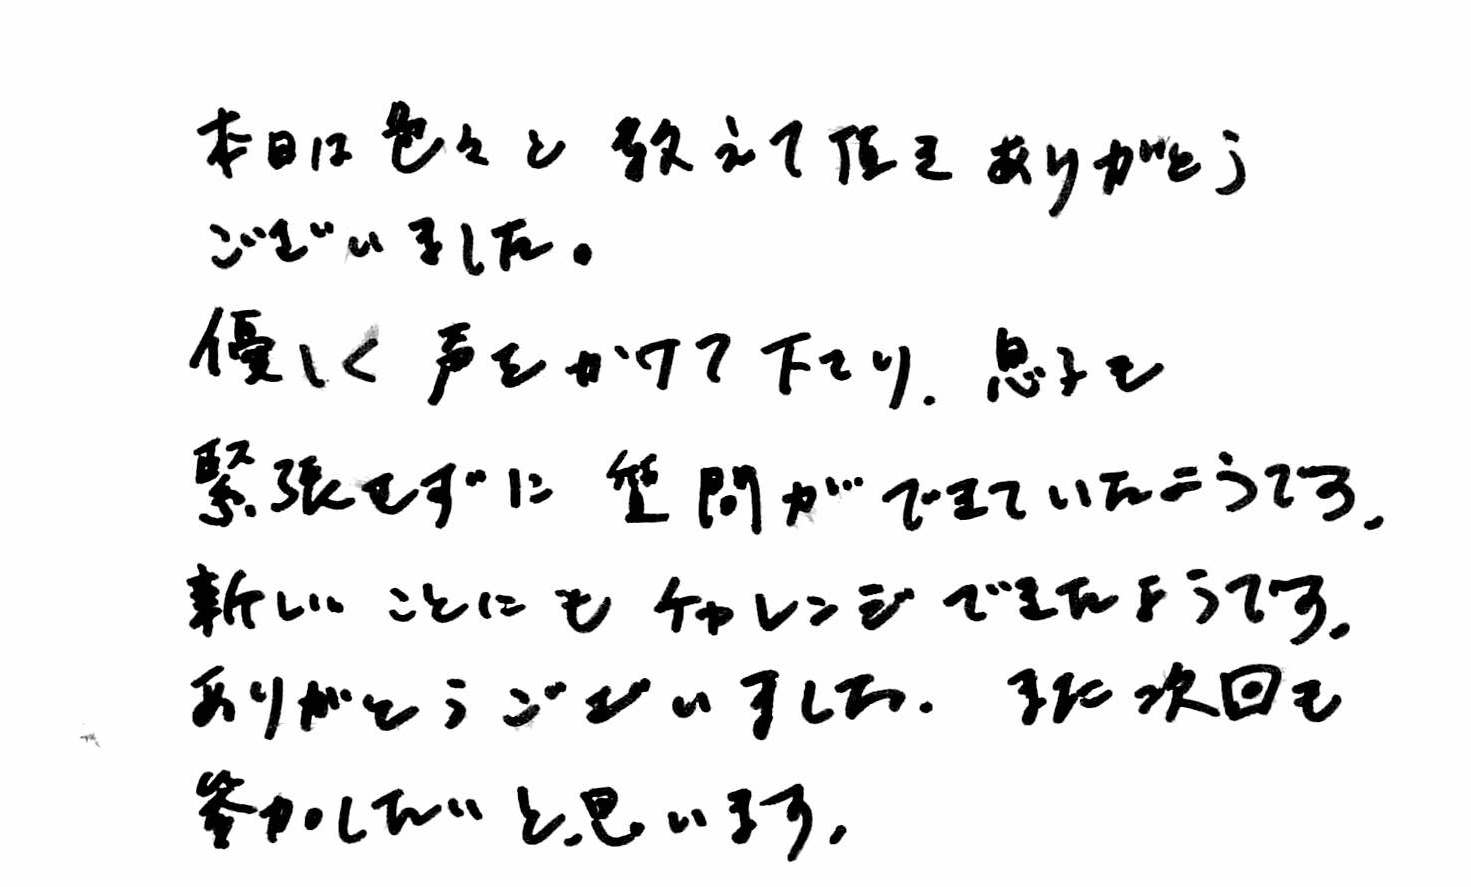 本日は色々と教えて頂きありがとう
ございました。
優しく声をかけて下さり、息子も
緊張せずに質問ができていたようです。
新しいことにもチャレンジできたようです。
ありがとうございました。また次回も
参加したいと思います。